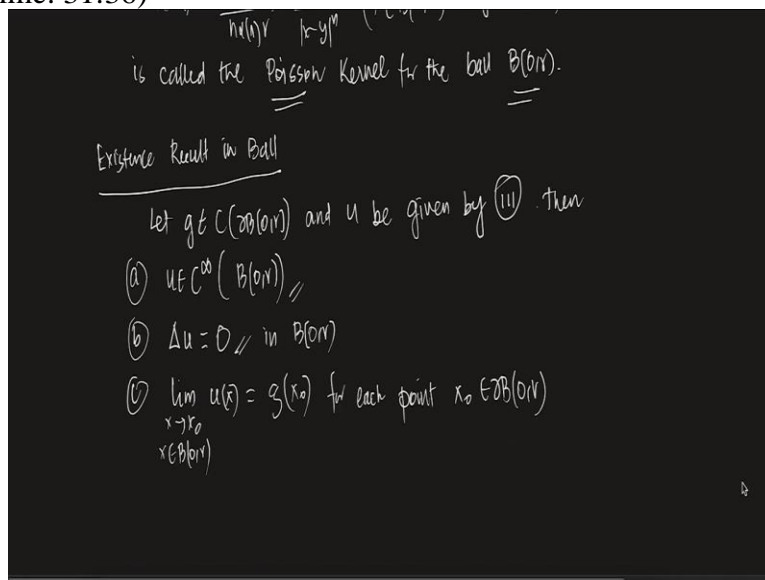 nα(n)r |x-y|ⁿ
is called the Poisson Kernel for the ball B(0,r).
Existence Result in Ball
Let g ∈ C(∂B(0,r)) and u be given by (III). Then
(a) u ∈ C^∞(B(0,r))
(b) Δu = 0 in B(0,r)
(c) lim u(x) = g(x₀) for each point x₀ ∈ ∂B(0,r)
x→x₀
x∈B(0,r)